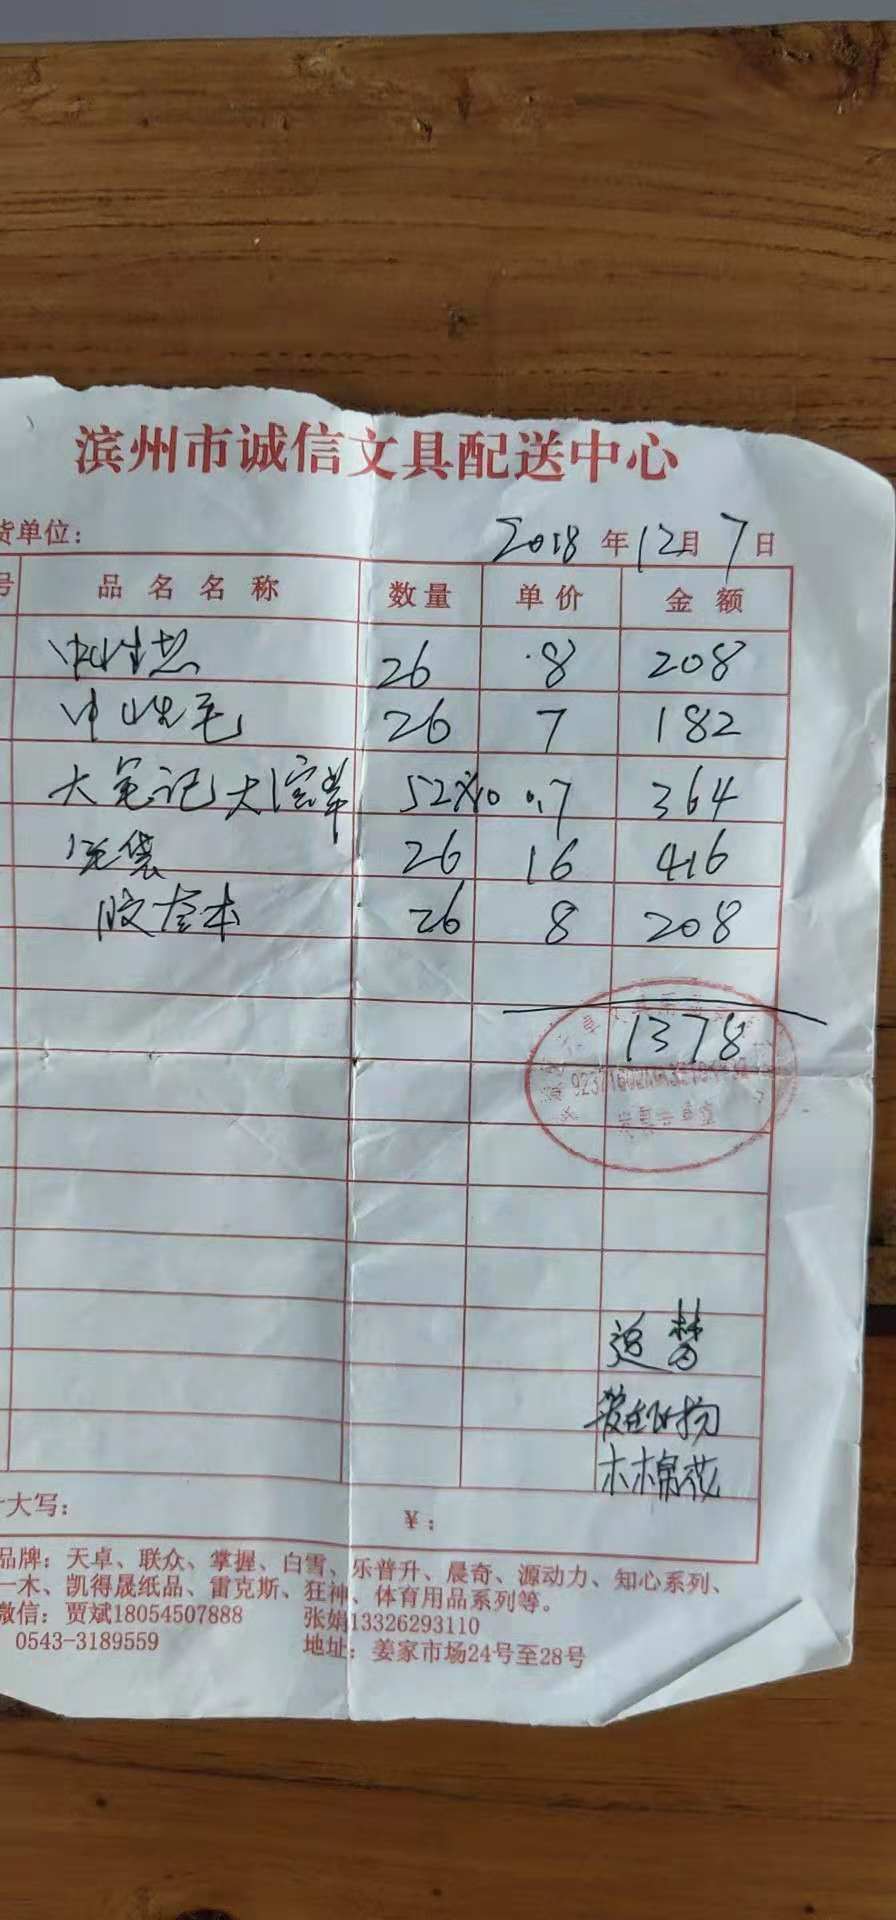 滨州市诚信文具配送中心
货单位: 2018 年 12 月 7 日
号 品名名称 数量 单价 金额
26 8 208
中性笔 26 7 182
大笔记 52×10 0.7 364
笔袋 26 16 416
胶套本 26 8 208
1378
追梦
木棉花
大写: ¥:
品牌: 天卓、联众、掌握、白雪、乐普升、晨奇、源动力、知心系列、
一木、凯得晟纸品、雷克斯、狂神、体育用品系列等。
微信: 贾斌18054507888 张娟13326293110
0543-3189559 地址: 姜家市场24号至28号